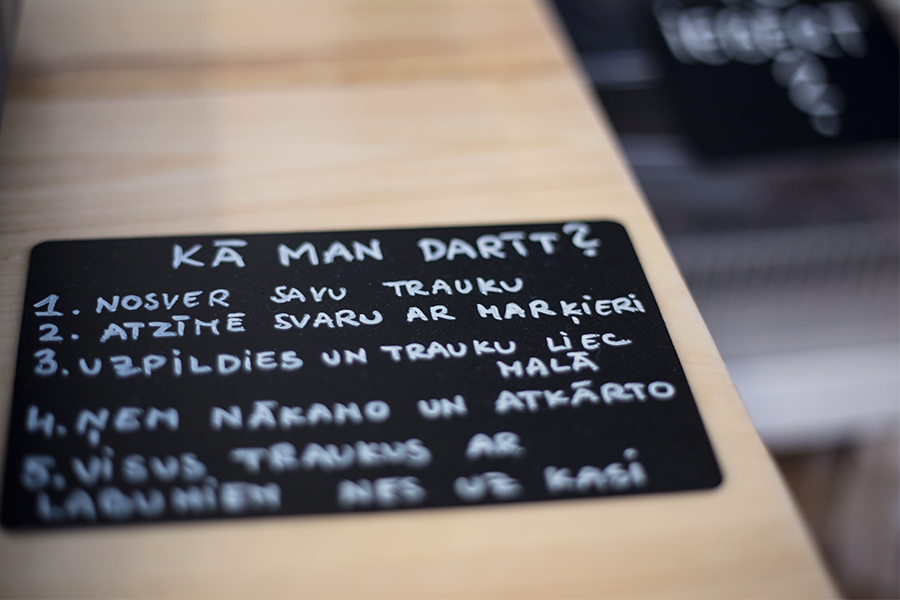 KĀ MAN DARĪT?
1. NOSVER SAVU TRAUKU
2. ATZĪMĒ SVARU AR MARĶIERI
3. UZPILDIES UN TRAUKU LIEC
MALĀ
4. ŅEM NĀKAMO UN ATKĀRTO
5. VISUS TRAUKUS AR
LABUMIEM NES UZ KASI